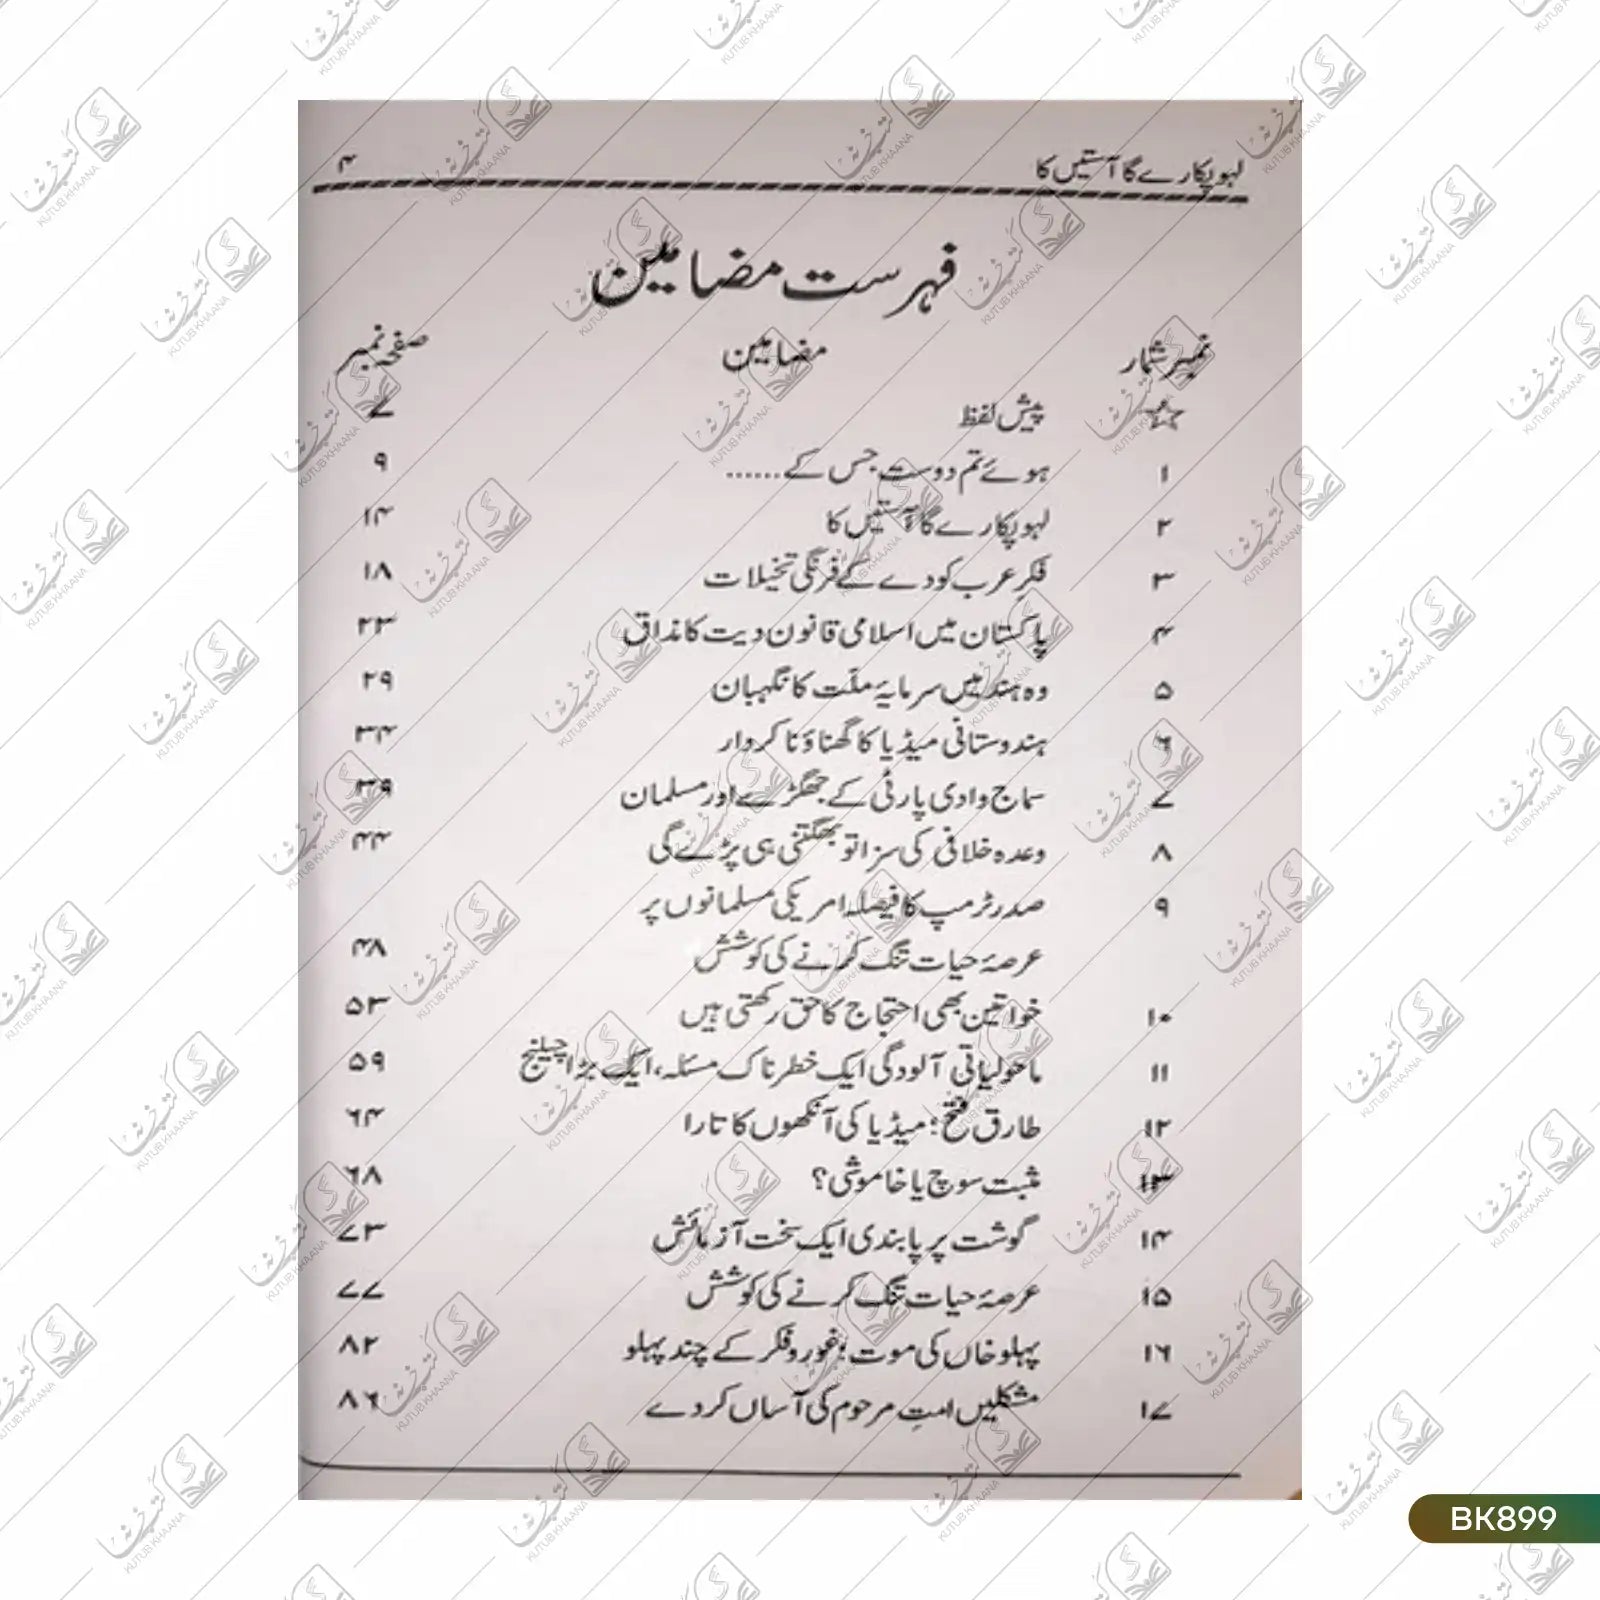 لہو پکارے گا آستیں کا ۴
فہرست مضامین
نمبر شمار مضامین صفحہ نمبر
☆ پیش لفظ ۷
۱ ہوئے تم دوست جس کے...... ۹
۲ لہو پکارے گا آستیں کا ۱۴
۳ فکرِ عرب کو دے کے فرنگی تخیلات ۱۸
۴ پاکستان میں اسلامی قانون دیت کا مذاق ۲۳
۵ وہ ہند میں سرمایۂ ملّت کا نگہبان ۲۹
۶ ہندوستانی میڈیا کا گھناؤنا کردار ۳۴
۷ سماج وادی پارٹی کے جھگڑے اور مسلمان ۳۹
۸ وعدہ خلافی کی سزا تو بھگتنی ہی پڑے گی ۴۴
۹ صدر ٹرمپ کا فیصلہ امریکی مسلمانوں پر
عرصۂ حیات تنگ کرنے کی کوشش ۴۸
۱۰ خواتین بھی احتجاج کا حق رکھتی ہیں ۵۳
۱۱ ماحولیاتی آلودگی ایک خطرناک مسئلہ، ایک بڑا چیلنج ۵۹
۱۲ طارق فتح: میڈیا کی آنکھوں کا تارا ۶۴
۱۳ مثبت سوچ یا خاموشی؟ ۶۸
۱۴ گوشت پر پابندی ایک سخت آزمائش ۷۳
۱۵ عرصۂ حیات تنگ کرنے کی کوشش ۷۷
۱۶ پہلو خاں کی موت؛ غور و فکر کے چند پہلو ۸۲
۱۷ مشکلیں امتِ مرحوم کی آساں کر دے ۸۶
BK899
کتب خانہ
KUTUB KHAANA